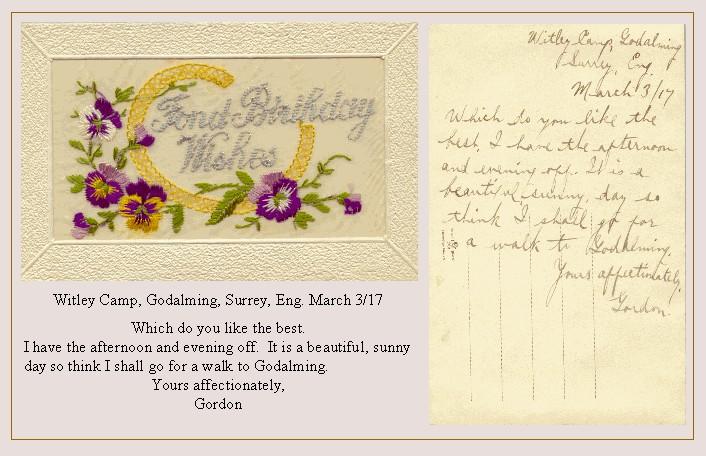 Fond Birthday
Wishes
Witley Camp, Godalming, Surrey, Eng. March 3/17
Which do you like the best.
I have the afternoon and evening off. It is a beautiful, sunny
day so think I shall go for a walk to Godalming.
Yours affectionately,
Gordon
Witley Camp, Godalming
Surrey, Eng.
March 3/17
Which do you like the
best. I have the afternoon
and evening off. It is a
beautiful sunny, day so
think I shall go for
a walk to Godalming.
Yours affectionately,
Gordon.